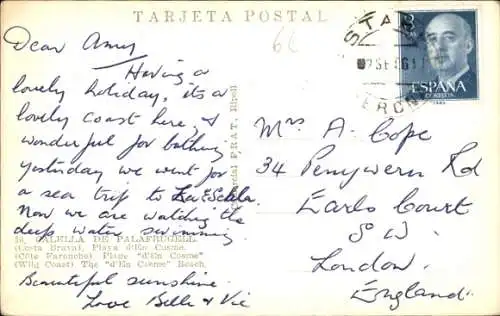 TARJETA POSTAL
Dear Amy
Having a
lovely holiday, its a
lovely coast here, &
wonderful for bathing
yesterday we went for
a sea trip to La Escala.
Now we are watching the
deep water swimming.
CALELLA DE PALAFRUGELL
(Costa Brava), Playa d'En Cosme.
(Côte Farouche) Plage "d'En Cosme"
(Wilg Coast) The "d'En Cosme" Beach.
Beautiful sunshine.
Love Belle & Vic
66
Comercial PRAT, Ripoll
STA
GERON
ESPAÑA
CORREOS
Mrs A. Cope
34 Penywern Rd
Earls Court
S W.
London.
England.